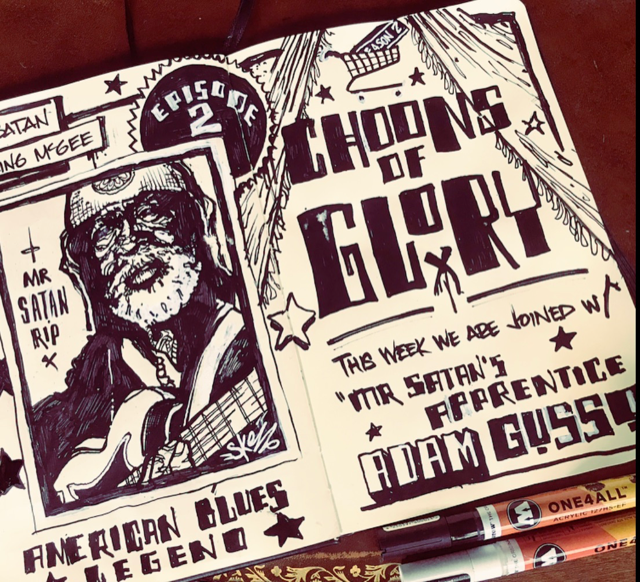 SATAN
ING McGEE
EPISODE
2
MR
SATAN
RIP
X
Skezz
AMERICAN BLUES
LEGEND
SEASON 2
CHOONS
OF
GLORY
X
THIS WEEK WE ARE JOINED W/
"MR SATAN'S
APPRENTICE
ADAM GUSSO
ONE4ALL™
ACRYLIC 127HS-EF
ONE4